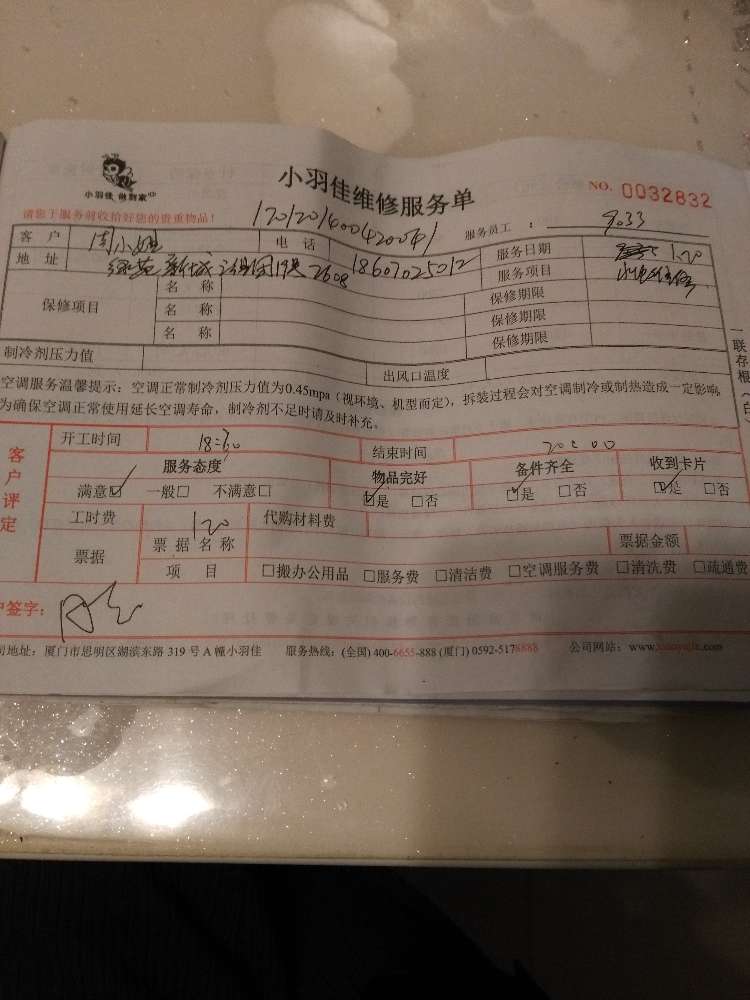 小羽佳 做到家
小羽佳维修服务单
NO. 0032832
请您于服务前收拾好您的贵重物品!
170120140042004 1
服务员工 : 9033
客 户 周小姐 电 话 18607025012 服务日期 1.20
地 址 新城 19# 2608 服务项目 水电维修
保修项目 名 称 保修期限
名 称 保修期限
名 称 保修期限
制冷剂压力值 出风口温度
空调服务温馨提示：空调正常制冷剂压力值为0.45mpa（视环境、机型而定），拆装过程会对空调制冷或制热造成一定影响，
为确保空调正常使用延长空调寿命，制冷剂不足时请及时补充。
一联存根（白
客户评定
开工时间 18:30 结束时间 20:00
服务态度 物品完好 备件齐全 收到卡片
满意☑ 一般□ 不满意□ ☑是 □否 ☑是 □否 ☑是 □否
工时费 120 代购材料费
票据 票 据 名 称 票据金额
项 目 □搬办公用品 □服务费 □清洁费 □空调服务费 □清洗费 □疏通费
户签字：
司地址：厦门市思明区湖滨东路 319 号 A 幢小羽佳 服务热线：(全国) 400-6655-888 (厦门) 0592-5178888 公司网站：www.xiaoyujia.com